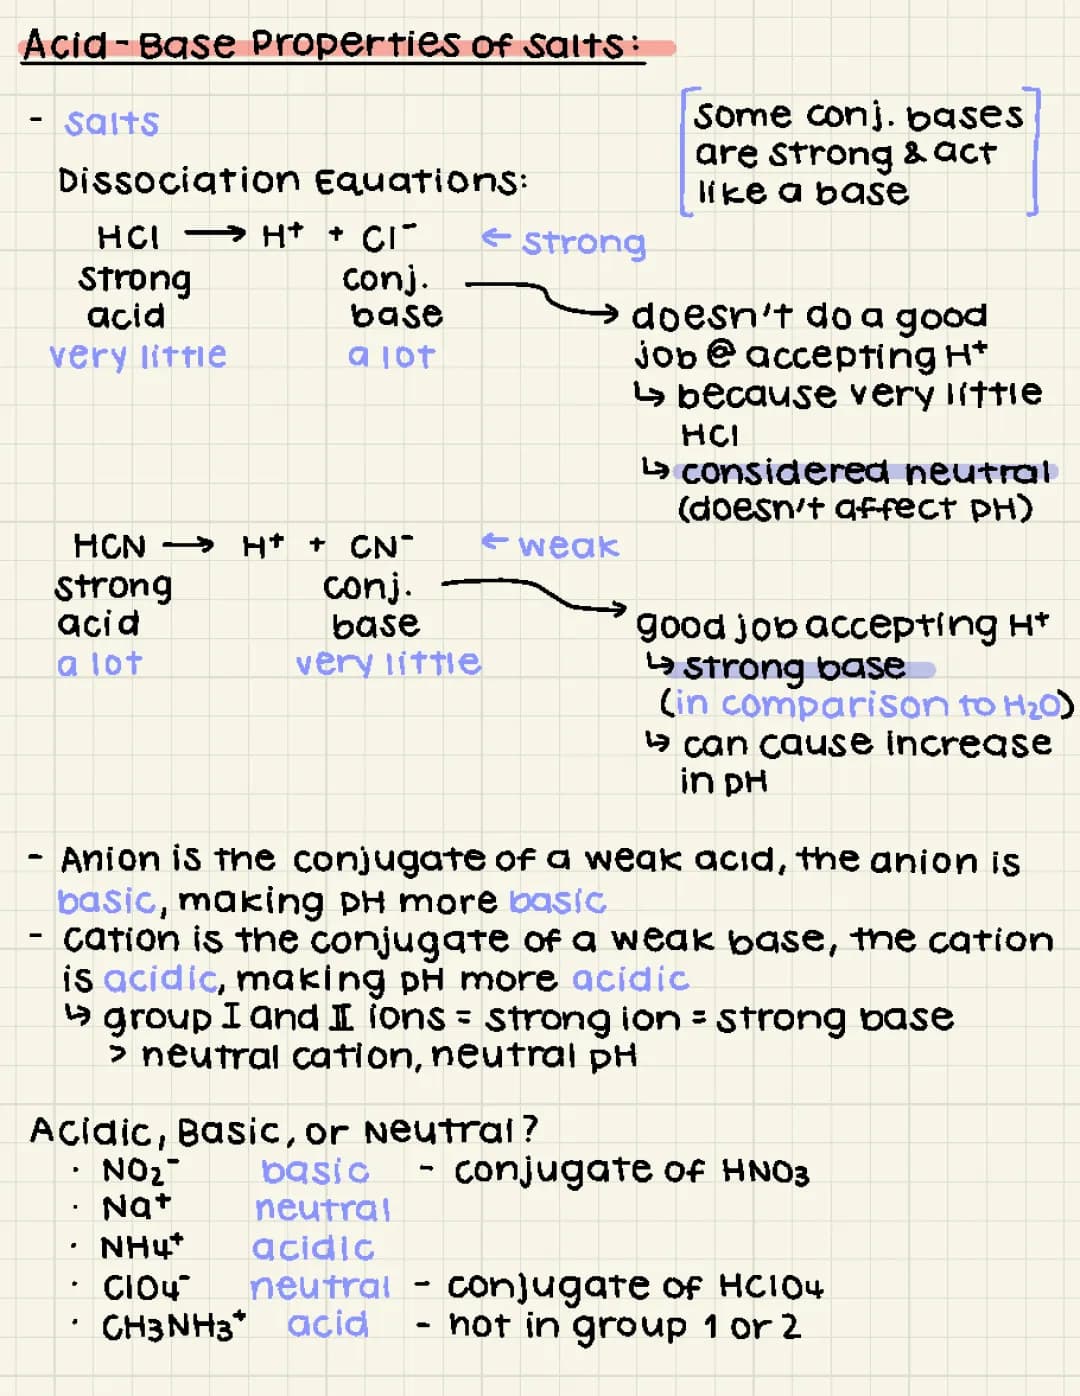 Acid-Base Properties of Salts:
- salts
[some conj. bases
are strong & act
like a base]
Dissociation Equations:
HCl → H⁺ + Cl⁻ ← strong
strong conj.
acid base
very little a lot
→ doesn't do a good
job @ accepting H⁺
↳ because very little
HCl
↳ considered neutral
(doesn't affect pH)
HCN → H⁺ + CN⁻ ← weak
strong conj.
acid base
a lot very little
→ good job accepting H⁺
↳ strong base
(in comparison to H₂O)
↳ can cause increase
in pH
- Anion is the conjugate of a weak acid, the anion is
basic, making pH more basic
- cation is the conjugate of a weak base, the cation
is acidic, making pH more acidic
↳ group I and II ions = strong ion = strong base
> neutral cation, neutral pH
Acidic, Basic, or Neutral?
· NO₂⁻ basic - conjugate of HNO₃
· Na⁺ neutral
· NH₄⁺ acidic
· ClO₄⁻ neutral - conjugate of HClO₄
· CH₃NH₃⁺ acid - not in group 1 or 2